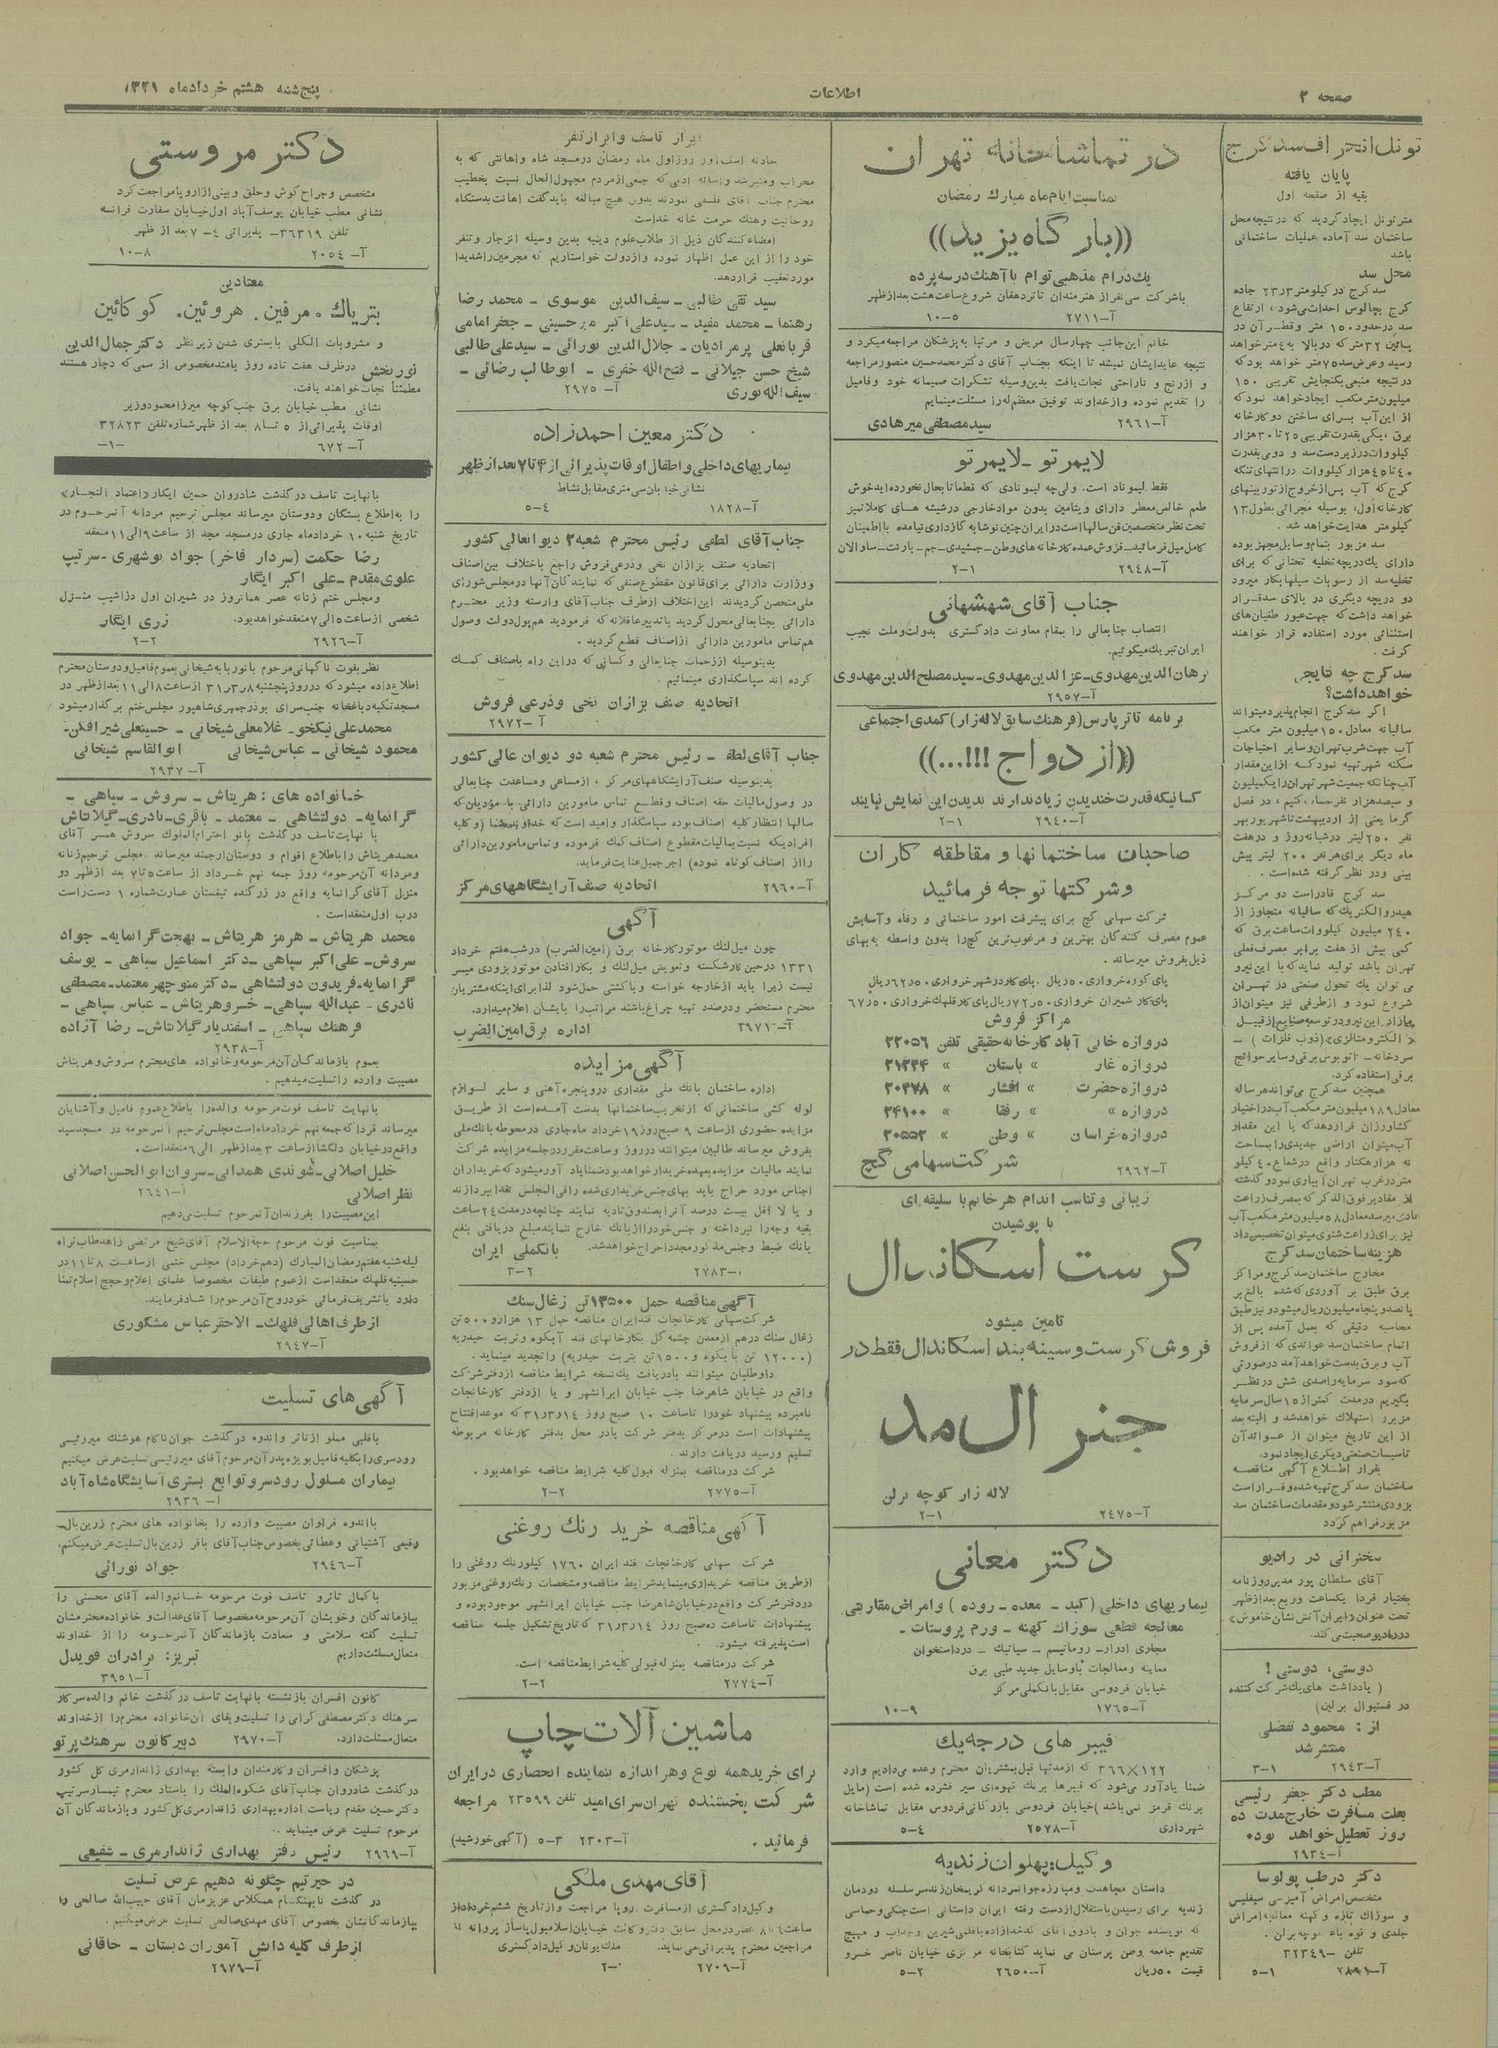 صفحه ۲
اطلاعات
پنج‌شنبه هشتم خردادماه ۱۳۳۱
تونل انحراف سد کرج
پایان یافته
بقیه از صفحه اول
متر تونل ایجاد گردید که در نتیجه محل
ساختمان سد آماده عملیات ساختمانی
باشد
محل سد
سد کرج در کیلومتر ۲۳ر۳ جاده
کرج بچالوس احداث میشود، ارتفاع
سد در حدود ۱۵۰ متر و قطر آن در
پائین ۳۲ متر که در بالا به ۴ متر خواهد
رسید و عرض سد ۷۵ متر خواهد بود که
در نتیجه منبعی بگنجایش تقریبی ۱۵۰
میلیون متر مکعب ایجاد خواهد نمود که
از این آب برای ساختن دو کارخانه
برق، یکی بقدرت تقریبی ۲۵ تا ۳۰ هزار
کیلووات در زیر دست سد و دومی بقدرت
۴۰ تا ۴۵ هزار کیلووات در انتهای تنگه
کرج که آب پس از خروج از توربینهای
کارخانه اول، بوسیله مجرائی بطول ۱۳
کیلومتر هدایت خواهد شد.
سد مزبور بتمام وسایل مجهز بوده
دارای یک دریچه تخلیه تحتانی که برای
تخلیه سد از رسوبات سیلها بکار میرود
دو دریچه دیگری در بالای سد قرار
خواهد داشت که جهت عبور طغیان‌های
استثنائی مورد استفاده قرار خواهند
گرفت.
سد کرج چه نتایجی
خواهد داشت؟
اگر سد کرج انجام پذیرد میتواند
سالیانه معادل ۱۵۰ میلیون متر مکعب
آب جهت شرب تهران و سایر احتیاجات
سکنه شهر تهیه نمود که از این مقدار
آب چنانکه جمعیت شهر تهران را یک میلیون
و سیصد هزار نفر حساب کنیم، در فصل
گرما یعنی از اردیبهشت تا شهریور بهر
نفر ۲۵۰ لیتر در شبانه روز و در هفت
ماه دیگر برای هر نفر ۲۰۰ لیتر پیش
بینی و در نظر گرفته شده است.
سد کرج قادر است دو مرکز
هیدروالکتریک که سالیانه متجاوز از
۲۴۰ میلیون کیلووات ساعت برق که
کمی بیش از هفت برابر مصرف فعلی
تهران باشد تولید نماید که با این نیرو
می توان یک تحول صنعتی در تهران
شروع نمود و از طرفی نیز میتوان از
مازاد این نیرو در توسعه صنایع از قبیل
«الکترومتالژی» (ذوب فلزات) -
سردخانه - اتوبوس برقی و سایر حوائج
برقی استفاده کرد.
همچنین سد کرج می‌تواند هر ساله
معادل ۱۸۹ میلیون متر مکعب آب در اختیار
کشاورزان قرار دهد که با این مقدار
آب میتوان اراضی جدیدی را بمساحت
نه هزار هکتار واقع در شعاع ۴۰ کیلو
متر در غرب تهران آبیاری نمود و گذشته
از مقادیر فوق الذکر که بمصرف زراعت
عادی میرسد معادل ۵۸ میلیون متر مکعب آب
نیز برای زراعت شتوی میتوان تخصیص داد
هزینه ساختمان سد کرج
مخارج ساختمان سد کرج و مراکز
برق طبق بر آوردی که شده بالغ بر
پانصد و پنجاه میلیون ریال میشود و نیز طبق
محاسبه دقیقی که بعمل آمده پس از
اتمام ساختمان سد عوائدی که از فروش
آب و برق بدست خواهد آمد در صورتی
که سود سرمایه را صدی شش در نظر
بگیریم در مدت کمتر از ۱۵ سال سرمایه
مزبور استهلاک خواهد شد و البته بعد
از این تاریخ میتوان از عوائد آن
تاسیسات صنعتی دیگری ایجاد نمود.
بقرار اطلاع آگهی مناقصه
ساختمان سد کرج تهیه شده و قرار است
بزودی منتشر شود و مقدمات ساختمان سد
مزبور فراهم گردد
سخنرانی در رادیو
آقای سلطان پور مدیر روزنامه
بختیار فردا یکساعت و ربع بعد از ظهر
تحت عنوان (ایران آتش نشان خاموش)
در رادیو صحبت می کند.
دوستی، دوستی!
(یادداشت های یک شرکت کننده
در فستیوال برلین)
از: محمود تفضلی
منتشر شد
آ-۲۹۴۳ ۱-۳
مطب دکتر جعفر رئیسی
بعلت مسافرت خارج مدت ده
روز تعطیل خواهد بود.
آ-۲۹۳۴
دکتر در طب پولوسا
متخصص امراض آمیزشی سیفلیس
و سوزاک تازه و کهنه معالجه امراض
جلدی و قوه باء
تلفن ۳۲۳۴۹-
۱-۵
در تماشاخانه تهران
بمناسبت ایام ماه مبارک رمضان
((بارگاه یزید))
یک درام مذهبی توام با آهنگ در سه پرده
با شرکت سی نفر از هنرمندان تاتر دهقان شروع ساعت هشت بعد از ظهر
آ-۲۷۱۱ ۵-۱۰
خانم این جانب چهار سال مریض و مرتبا به پزشکان مراجعه میکرد و
نتیجه عایدایشان نمیشد تا اینکه بجناب آقای دکتر محمد حسین منصور مراجعه
و از رنج و ناراحتی نجات یافت بدین وسیله تشکرات صمیمانه خود و فامیل
را تقدیم نموده و از خداوند توفیق معظم له را مسئلت مینمایم
آ-۲۹۶۱ سید مصطفی میر هادی
لایمر تو - لایمر تو
فقط لیموناد است. ولی چه لیمونادی که قطعا تا بحال نخورده اید خوش
طعم خالص معطر دارای ویتامین بدون مواد خارجی در شیشه های کاملا تمیز
تحت نظر متخصصین فن سالها است در ایران چنین نوشابه گازداری نیامده با اطمینان
کامل میل فرمائید - فروش عمده کارخانه های وطن - جمشیدی - جم - بارنت - ساوالان
آ-۲۹۴۸ ۱-۲
جناب آقای شهشهانی
انتصاب جنابعالی را بمقام معاونت دادگستری بدولت و ملت نجیب
ایران تبریک میگوئیم.
برهان الدین مهدوی - عزالدین مهدوی - سید مصلح الدین مهدوی
آ-۲۹۵۷
برنامه تاتر پارس (فرهنگ سابق لاله زار) کمدی اجتماعی
((ازدواج!!!...))
کسانیکه قدرت خندیدن زیاد ندارند بدیدن این نمایش نیایند
آ-۲۹۴۰ ۱-۲
صاحبان ساختمانها و مقاطعه کاران
و شرکتها توجه فرمائید
شرکت سهامی گچ برای پیشرفت امور ساختمانی و رفاه و آسایش
عموم مصرف کنندگان بهترین و مرغوب ترین گچ را بدون واسطه به بهای
ذیل بفروش میرساند.
پای کوره خرواری ۵۰ ریال - پای کار در شهر خرواری ۶۲ر۵۰ ریال
پای کار شمیران خرواری ۷۲ر۵۰ ریال پای کار قلهک خرواری ۶۷ر۵۰
مراکز فروش
دروازه خانی آباد کارخانه حقیقی تلفن ۲۲۰۵۶
دروازه غار » باستان » ۲۱۲۴۴
دروازه حضرت » افشار » ۲۰۳۷۸
دروازه » » رفقا » ۲۴۱۰۰
دروازه خراسان » وطن » ۲۰۵۵۲
آ-۲۹۶۲ شرکت سهامی گچ
زیبائی و تناسب اندام هر خانم با سلیقه ای
با پوشیدن
کرست اسکاندال
تامین میشود
فروش کرست و سینه بند اسکاندال فقط در
جنرال مد
لاله زار کوچه برلن
آ-۲۴۷۵ ۱-۲
دکتر معانی
بیماریهای داخلی (کبد - معده - روده) و امراض مقاربتی
معالجه قطعی سوزاک کهنه - ورم پروستات -
مجاری ادرار - روماتیسم - سیاتیک - درد استخوان
معاینه و معالجات با وسایل جدید طبی برق
خیابان فردوسی مقابل بانک ملی مرکز
آ-۱۷۶۵ ۹-۱۰
فیبر های درجه یک
۱۲۲×۳۶۶ که از مدتها قبل بمشتریان محترم وعده می دادیم وارد
ضمنا یادآور می شود که فیبرها برنگ قهوه ای سیر فشرده شده است (مایل
برنگ قرمز نمی باشد) خیابان فردوسی بازرگانی فردوس مقابل تماشاخانه
شهرداری آ-۲۵۷۸ ۴-۵
وکیل: پهلوان زندیه
داستان مجاهدت و مبارزه جوانمردانه کریمخان زند سرسلسله دودمان
زندیه برای رسیدن باستقلال از دست رفته ایران داستانی است جنگی و حماسی
تقدیم جامعه وطن پرستان می نماید کتابخانه مرکزی خیابان ناصر خسرو
قیمت ۵۰ ریال آ-۲۶۵۰ ۲-۵
ابراز تاسف و ابراز تنفر
حادثه اسف آور روز اول ماه رمضان در مسجد شاه و اهانتی که به
محراب و منبر شد و اسائه ادبی که جمعی از مردم مجهول الحال نسبت بخطیب
محترم جناب آقای فلسفی نمودند بدون هیچ مبالغه باید گفت اهانت بدستگاه
روحانیت و هتک حرمت خانه خداست.
امضاء کنندگان ذیل از طلاب علوم دینیه بدین وسیله انزجار و تنفر
خود را از این عمل اظهار نموده و از دولت خواستاریم که مجرمین را شدیدا
مورد تعقیب قرار دهد.
سید تقی طالبی - سیف الدین موسوی - محمد رضا
رهنما - محمد مفید - سید علی اکبر میر حسینی - جعفر امامی
قربانعلی پر مرادیان - جلال الدین نورائی - سید علی طالبی
شیخ حسن جیلانی - فتح الله خفری - ابوطالب رضائی -
سیف الله نوری آ-۲۹۷۵
دکتر معین احمدزاده
بیماریهای داخلی و اطفال اوقات پذیرائی از ۴ تا ۷ بعد از ظهر
نشانی خیابان سی متری مقابل نشاط
آ-۱۸۲۸ ۴-۵
جناب آقای لطفی رئیس محترم شعبه ۲ دیوانعالی کشور
اتحادیه صنف بزازان نخی و ذرعی فروش راجع باختلاف بین اصناف
و وزارت دارائی برای قانون مقطوع صنفی که نمایندگان آنها در مجلس شورای
ملی متحصن گردیدند این اختلاف از طرف جناب آقای وارسته وزیر محترم
دارائی بجنابعالی محول گردید با تدبیر عاقلانه که فرمودید هم پول دولت وصول
هم تماس مامورین دارائی از اصناف قطع گردید.
بدینوسیله از زحمات جنابعالی و کسانی که در این راه باصناف کمک
کرده اند سپاسگذاری مینمائیم.
اتحادیه صنف بزازان نخی و ذرعی فروش
آ-۲۹۷۲
جناب آقای لطفی - رئیس محترم شعبه دو دیوان عالی کشور
بدینوسیله صنف آرایشگاههای مرکز، از مساعی و مساعدت جنابعالی
در وصول مالیات حقه اصناف و قطع تماس مامورین دارائی با مؤدیان که
سالها انتظار کلیه اصناف بوده سپاسگذار و امید است که خداوند بشما (و کلیه
افرادیکه نسبت بمالیات مقطوع اصناف کمک فرموده و تماس مامورین دارائی
را از اصناف کوتاه نموده) اجر جمیل عنایت فرماید.
آ-۲۹۶۰ اتحادیه صنف آرایشگاههای مرکز
آگهی
چون میل لنگ موتور کارخانه برق (امین الضرب) در شب هفتم خرداد
۱۳۳۱ در حین کار شکسته و تعویض میل لنگ و بکار افتادن موتور بزودی میسر
نیست زیرا باید از خارجه خواسته و یا کشتی حمل شود لذا برای اینکه مشتریان
محترم مستحضر و درصدد تهیه چراغ باشند مراتب را بایشان اعلام میدارد.
آ-۳۹۷۱ اداره برق امین الضرب
آگهی مزایده
اداره ساختمان بانک ملی مقداری در و پنجره آهنی و سایر لوازم
لوله کشی ساختمانی که از تخریب ساختمانها بدست آمده است از طریق
مزایده حضوری از ساعت ۹ صبح روز ۱۹ خرداد ماه جاری در محوطه بانک ملی
بفروش میرساند طالبین میتوانند در روز و ساعت مقرر در جلسه مزایده شرکت
نمایند مالیات مزایده بعهده خریدار خواهد بود ضمنا یادآور میشود که خریداران
اجناس مورد حراج باید بهای جنس خریداری شده را فی المجلس نقدا بپردازند
و یا لااقل بیست درصد آنرا بصندوق تادیه نمایند چنانچه در مدت ۲۴ ساعت
بقیه وجه را نپرداخته و جنس خود را از بانک خارج ننمایند مبلغ دریافتی بنفع
بانک ضبط و جنس مذکور مجددا حراج خواهد شد. بانک ملی ایران
آ-۲۷۸۳ ۲-۳
آگهی مناقصه حمل ۱۳۵۰۰ تن زغال سنگ
شرکت سهامی کارخانجات قند ایران مناقصه حمل ۱۳ هزار و ۵۰۰ تن
زغال سنگ درهم از معدن چشمه گل بکارخانهای قند آبکوه و تربت حیدریه
(۱۲۰۰۰ تن بآبکوه و ۱۵۰۰ تن بتربت حیدریه) را تجدید مینماید.
داوطلبان میتوانند با دریافت یک نسخه شرایط مناقصه از دفتر شرکت
واقع در خیابان شاهرضا جنب خیابان ایرانشهر و یا از دفتر کارخانجات
نامبرده پیشنهاد خود را تا ساعت ۱۰ صبح روز ۳۱ر۳ر۱۴ که موعد افتتاح
پیشنهادات است در مرکز بدفتر شرکت یا در محل بدفتر کارخانه مربوطه
تسلیم و رسید دریافت دارند.
شرکت در مناقصه بمنزله قبول کلیه شرایط مناقصه خواهد بود.
آ-۲۷۷۵ ۲-۲
آگهی مناقصه خرید رنگ روغنی
شرکت سهامی کارخانجات قند ایران ۱۷۶۰ کیلو رنگ روغنی را
از طریق مناقصه خریداری مینماید شرایط مناقصه و مشخصات رنگ روغنی مزبور
در دفتر شرکت واقع در خیابان شاهرضا جنب خیابان ایرانشهر موجود بوده و
پیشنهادات تا ساعت ده صبح روز ۳۱ر۳ر۱۴ که تاریخ تشکیل جلسه مناقصه
است پذیرفته میشود.
شرکت در مناقصه بمنزله قبولی کلیه شرایط مناقصه است.
آ-۲۷۷۴ ۲-۲
ماشین آلات چاپ
برای خرید همه نوع و هر اندازه بنماینده انحصاری در ایران
شرکت بخشنده تهران سرای امید تلفن ۲۳۵۹۹ مراجعه
فرمائید. آ-۲۳۰۳ ۳-۵ (آگهی خورشید)
آقای مهدی ملکی
وکیل دادگستری از مسافرت اروپا مراجعت و از تاریخ ششم خرداد از
مراجعین محترم پذیرائی می نماید.
آ-۲۷۰۹
دکتر مروستی
متخصص و جراح گوش و حلق و بینی از اروپا مراجعت کرد
نشانی مطب خیابان یوسف آباد اول خیابان سفارت فرانسه
تلفن ۳۶۳۱۹- پذیرائی ۴-۷ بعد از ظهر
آ-۲۰۵۴ ۸-۱۰
معتادین
بتریاک، مرفین، هروئین، کوکائین
و مشروبات الکلی با بستری شدن زیر نظر دکتر جمال الدین
نوربخش در ظرف هفت تا ده روز با متد مخصوص از سمی که دچار هستند
مطمئنا نجات خواهند یافت.
نشانی مطب خیابان برق جنب کوچه میرزا محمود وزیر
اوقات پذیرائی از ۵ تا ۸ بعد از ظهر شماره تلفن ۳۲۸۲۳
آ-۶۷۲
با نهایت تاسف درگذشت شادروان حسین ایگار (اعتماد التجار)
را به اطلاع بستگان و دوستان میرساند مجلس ترحیم مردانه آنمرحوم در
تاریخ شنبه ۱۰ خرداد ماه جاری در مسجد مجد از ساعت ۹ الی ۱۱ منعقد
رضا حکمت (سردار فاخر) جواد بوشهری - سرتیپ
علوی مقدم - علی اکبر ایگار
و مجلس ختم زنانه عصر همانروز در شمیران اول دزاشیب منزل
شخصی از ساعت ۵ الی ۷ منعقد خواهد بود. زری ایگار
آ-۲۹۲۶ ۲-۲
نظر بفوت ناگهانی مرحوم بانو ربابه شیخانی بعموم فامیل و دوستان محترم
اطلاع داده میشود که در روز پنجشنبه ۳۱ر۳ر۸ از ساعت ۸ الی ۱۱ بعد از ظهر در
مسجد تکیه دباغخانه جنب سرای بوذر جمهری شاهپور مجلس ختم برگذار میشود
محمد علی نیکخو - غلامعلی شیخانی - حسینعلی شیر افکن -
محمود شیخانی - عباس شیخانی ابوالقاسم شیخانی
آ-۲۹۳۷
خانواده های: هریتاش - سروش - سپاهی -
گرانمایه - دولتشاهی - معتمد - باقری - نادری - گیلانتاش
با نهایت تاسف درگذشت بانو احترام الملوک سروش همسر آقای
محمد هریتاش را باطلاع اقوام و دوستان ارجمند میرساند. مجلس ترحیم زنانه
و مردانه آن مرحومه روز جمعه نهم خرداد از ساعت ۵ تا ۷ بعد از ظهر در
منزل آقای گرانمایه واقع در زرگنده تیغستان عمارت شماره ۱ دست راست
درب اول منعقد است.
محمد هریتاش - هرمز هریتاش - بهجت گرانمایه - جواد
سروش - علی اکبر سپاهی - دکتر اسماعیل سپاهی - یوسف
گرانمایه - فریدون دولتشاهی - دکتر منوچهر معتمد - مصطفی
نادری - عبدالله سپاهی - خسرو هریتاش - عباس سپاهی -
فرهنگ سپاهی - اسفندیار گیلانتاش - رضا آزاده
آ-۲۹۳۸
بعموم بازماندگان آن مرحومه و خانواده های محترم سروش و هریتاش
مصیبت وارده را تسلیت میدهیم.
با نهایت تاسف فوت مرحومه والده را باطلاع عموم فامیل و آشنایان
میرساند فردا که جمعه نهم خرداد ماه است مجلس ترحیم آنمرحومه در مسجد سید
واقع در خیابان دلگشا از ساعت ۳ بعد از ظهر الی ۶ منعقد است.
خلیل اصلانی - شوندی همدانی - سروان ابوالحسن اصلانی
نظر اصلانی آ-۲۶۴۱
این مصیبت را بفرزندان آنمرحوم تسلیت می دهیم
بمناسبت فوت مرحوم حجة الاسلام آقای شیخ مرتضی زاهد طاب ثراه
لیله شنبه هفتم رمضان المبارک (دهم خرداد) مجلس ختمی از ساعت ۸ تا ۱۱ در
حسینیه قلهک منعقد است از عموم طبقات مخصوصا علمای اعلام و حجج اسلام تمنا
دارد با تشریف فرمائی خود روح آن مرحوم را شاد فرمایند.
از طرف اهالی قلهک - الاحقر عباس مشکوری
آ-۲۹۴۷
آگهی های تسلیت
با قلبی مملو از تاثر و اندوه درگذشت جوان ناکام هوشنگ میر رئیسی
رودسری را بکلیه فامیل بویژه پدر آن مرحوم آقای میر رئیسی تسلیت عرض میکنیم
بیماران مسلول رودسر و توابع بستری آسایشگاه شاه آباد
آ-۲۹۳۶
با اندوه فراوان مصیبت وارده را بخانواده های محترم زرین بال -
رفیعی آشتیانی و عطائی بخصوص جناب آقای باقر زرین بال تسلیت عرض میکنم.
آ-۲۹۴۶ جواد نورائی
با کمال تاثر و تاسف فوت مرحومه خانم والده آقای محسنی را
ببازماندگان و خویشان آن مرحومه مخصوصا آقای عدالت و خانواده محترمشان
تسلیت گفته سلامتی و سعادت بازماندگان آنمرحومه را از خداوند
متعال مسئلت داریم تبریز: برادران قویدل
آ-۳۹۵۱
کانون افسران بازنشسته با نهایت تاسف درگذشت خانم والده سرکار
سرهنگ دکتر مصطفی گرامی را تسلیت و بقای آن خانواده محترم را از خداوند
متعال مسئلت دارد. آ-۲۹۷۰ دبیر کانون سرهنگ پرتو
پزشکان و افسران و کارمندان وابسته بهداری ژاندارمری کل کشور
درگذشت شادروان جناب آقای شکوه الملک را باستاد محترم تیمسار سرتیپ
دکتر حسین مقدم ریاست اداره بهداری ژاندارمری کل کشور و بازماندگان آن
مرحوم تسلیت عرض مینماید.
آ-۲۹۶۹ رئیس دفتر بهداری ژاندارمری - شفیعی
در حیرتیم چگونه دهیم عرض تسلیت
درگذشت نابهنگام همکلاس عزیزمان آقای حبیب الله صالحی را
ببازماندگانشان بخصوص آقای مهدی صالحی تسلیت عرض میکنیم.
از طرف کلیه دانش آموزان دبستان - خاقانی
آ-۲۹۷۹